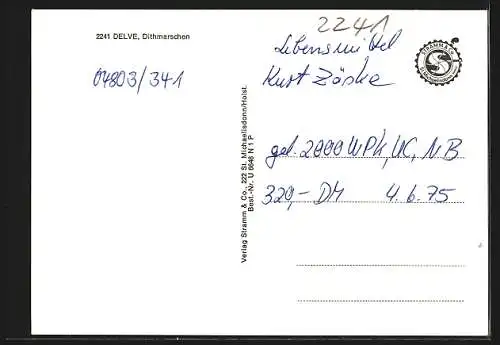 2241 DELVE, Dithmarschen
04803/341
Verlag Stramm & Co., 222 St. Michaelisdonn/Holst.
Best.-Nr. U 6646 N 1 P
2241
Lebensmittel
Kurt
STRAMM & Co
gel. 2000 WPK, UC, NB
320,- DM 4.6.75